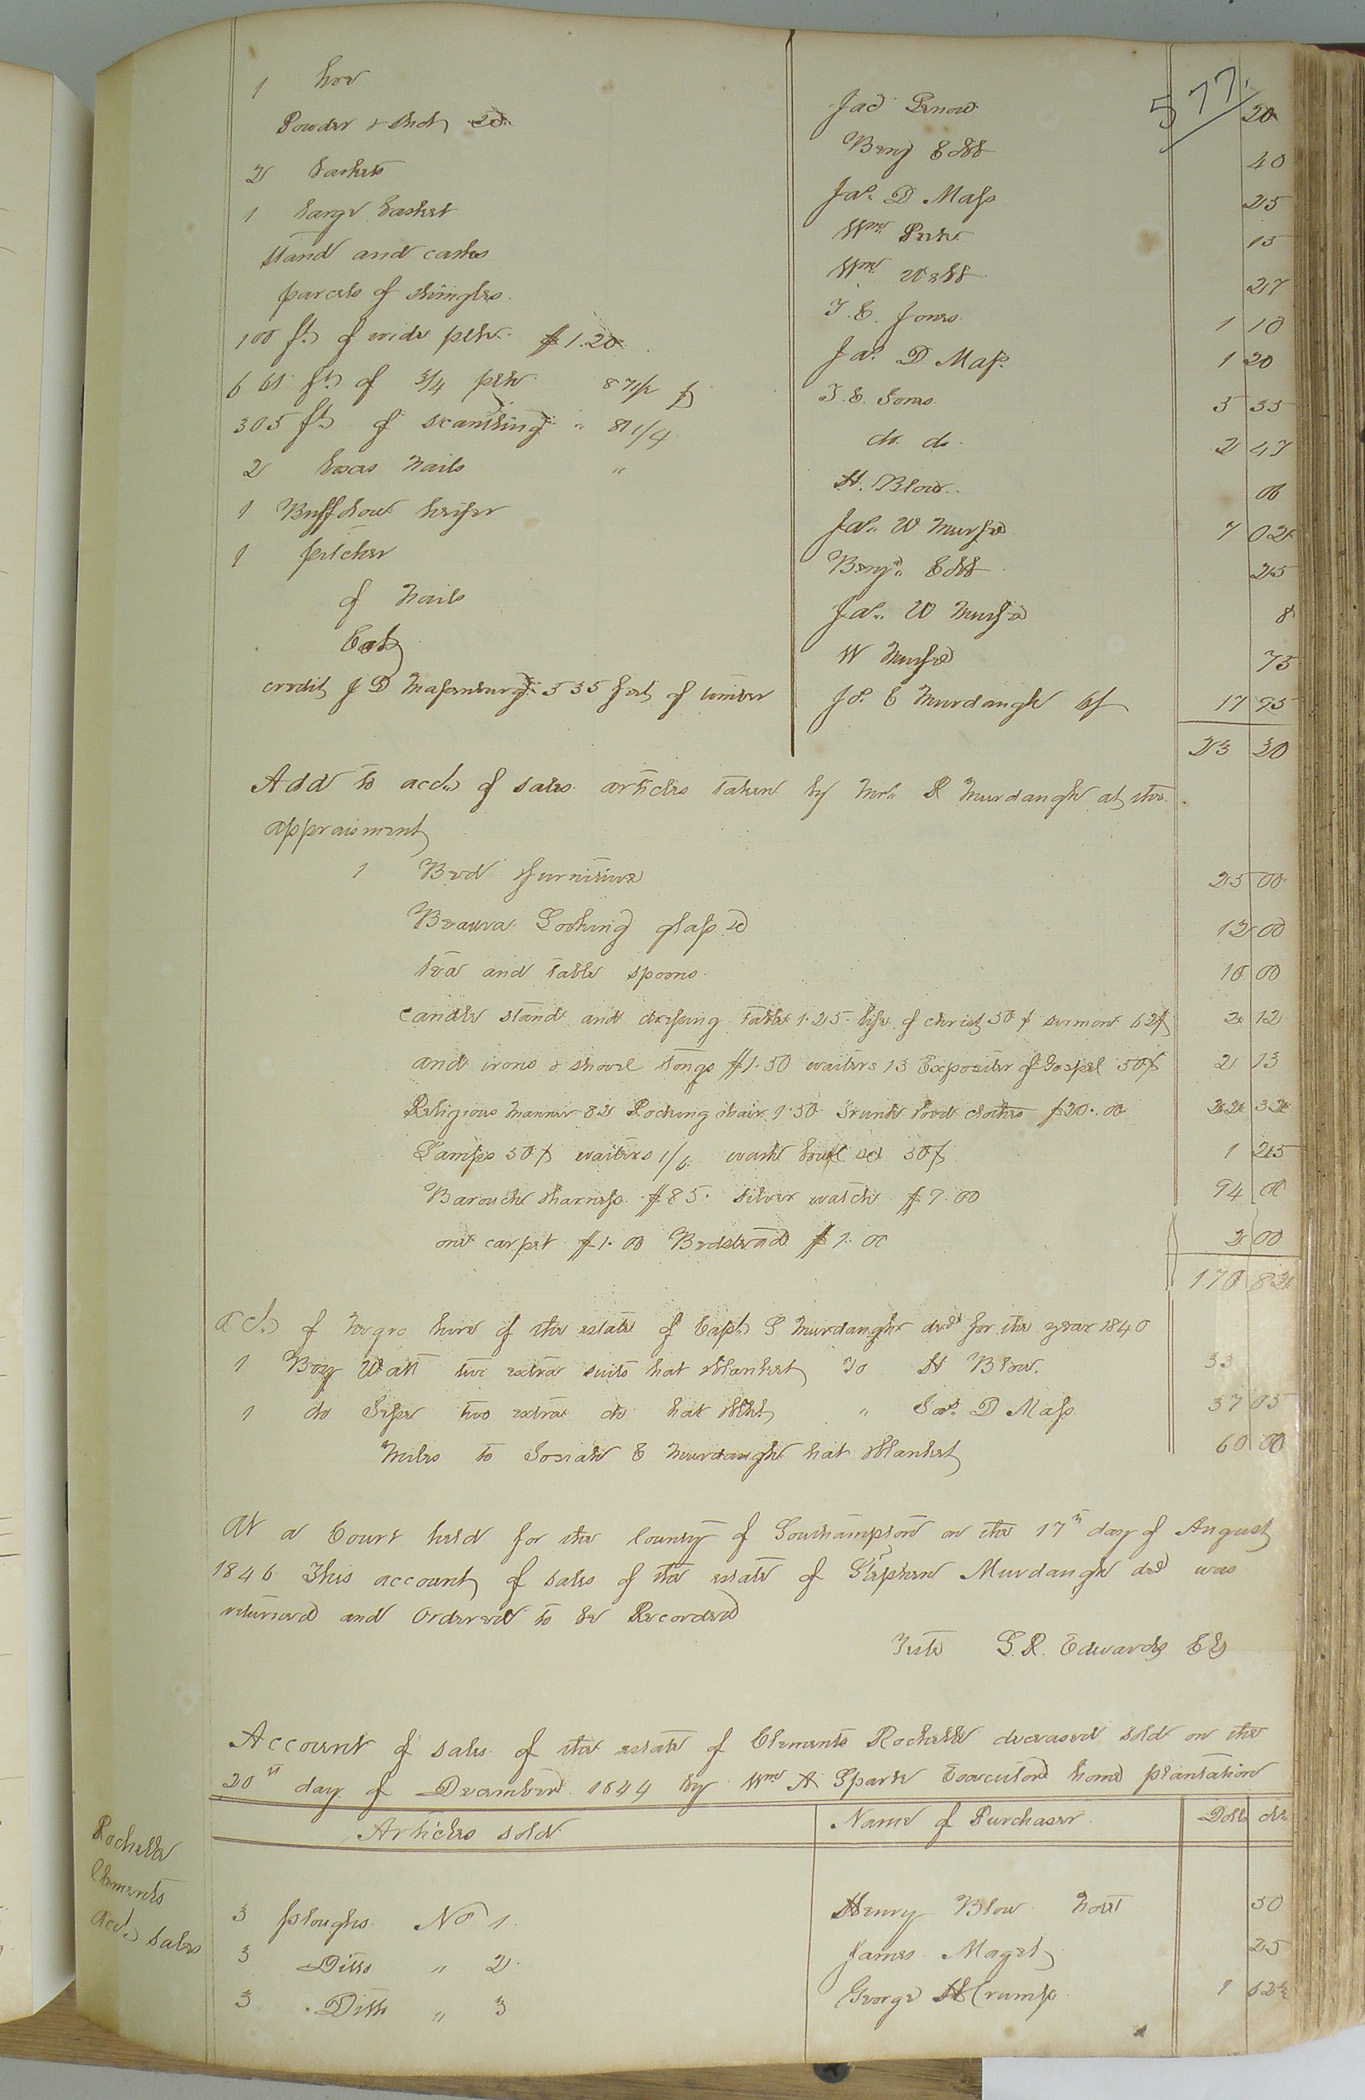 577
1 hoe Jac 20
Powder & Shot Benj Cobb 40
2 baskets Jas. D Mass 25
1 large basket Wm 15
Stand and casks Wm Webb 27
parcels of shingles. T. E. Jones 1 10
100 ft of wide plk. $1.20 Jas. D Mass. 1 20
6 61 ft of 3/4 plk 87 1/2 T. E. Jones 5 35
305 ft of scantling " 81 1/4 do. do. 2 47
2 boxes nails " H. Blow. 06
1 Buff heifer Jas. W Murfee 7 02
1 pitcher Benj. Cobb 25
of nails Jas. W Murfee 8
W Murfee 75
credit J D Massenburg 535 feet of timber Jo. E Murdaugh 17 95
23 30
Add to acct of sales articles taken by Mrs. R Murdaugh at the
appraisment
1 Bed furniture 25 00
Beaura Looking glass 12 00
tea and table spoons 10 00
candle stand and dressing table 1.25 life of christ 50 ¢ sermons 62¢ 2 12
and irons & shovel tongs $1.50 waiters 13 Expositer of Gospel 50¢ 2 13
Religious 82 Rocking chair 1.50 Trunk clothes $20.00 22 32
Lamps 50¢ waiters 1/6 wash bowl 50¢ 1 25
Barouche Harness $85. silver watch $9.00 94 00
one carpet $1.00 Bedstead $1.00 2 00
170 82
acct of Negro hire of the estate of Capt S Murdaugh decd for the year 1840
1 Boy Watt two extra suits hat & blanket To H Blow. 33
1 do two extra do hat " Jas. D Mass 37 05
Miles to Josiah E Murdaugh hat & blanket 60 00
At a Court held for the County of Southampton on the 17th day of August
1846 This account of sales of the estate of Stephen Murdaugh decd was
returned and Ordered to be Recorded
Teste S. R. Edwards Clk
Account of sales of the estate of Clements Rochelle deceased sold on the
20th day of December 1844 by Wm A Spark Executor home plantation
Rochelle
Clements
acct sales
Articles sold Name of Purchaser Dolls cts
3 ploughs No 1. Henry Blow 50
3 Ditto " 2. James Maget 25
3 Ditto " 3 George H Crump 1 62 1/2